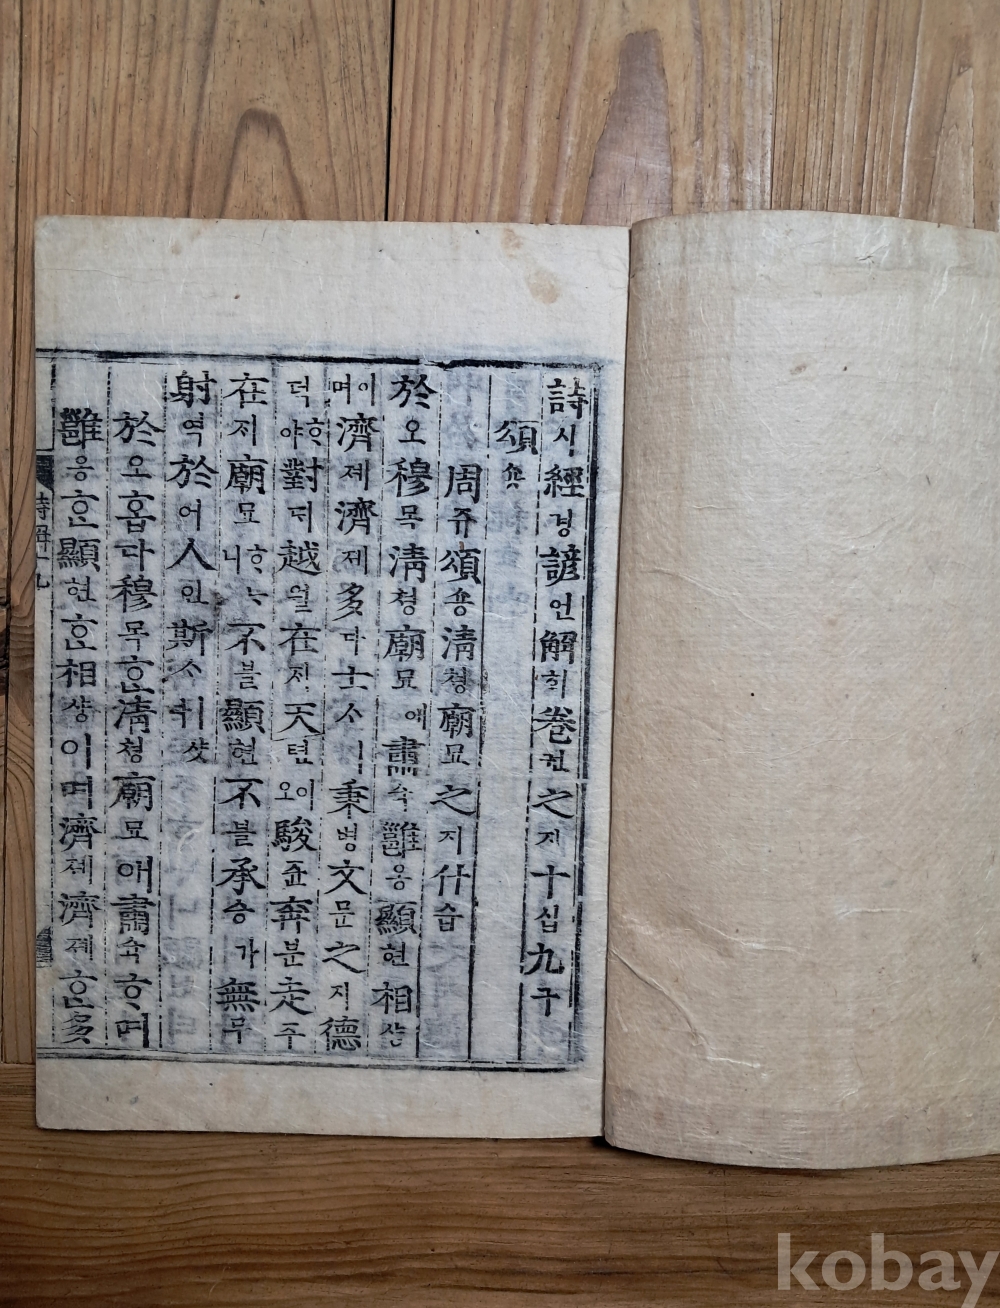 詩시經경諺언解ᄒᆡ卷권之지十십九구
頌숑
周쥬頌숑淸쳥廟묘之지什습
於오穆목淸쳥廟묘애肅슉雝옹顯현相샹
이며濟졔濟졔多다士ᄉᆞㅣ秉병文문之지德
덕ᄒᆞ야對ᄃᆡ越월在ᄌᆡ天텬이오駿쥰奔분走주
在ᄌᆡ廟묘ᄒᆞᄂᆞ니不블顯현不블承승가無무
射역於어人인斯ᄉᆞㅣ긔샷
於오홉다穆목ᄒᆞᆫ淸쳥廟묘애肅슉ᄒᆞ며
雝옹ᄒᆞᆫ顯현ᄒᆞᆫ相샹이며濟졔濟졔ᄒᆞᆫ多
詩 十九
kobay